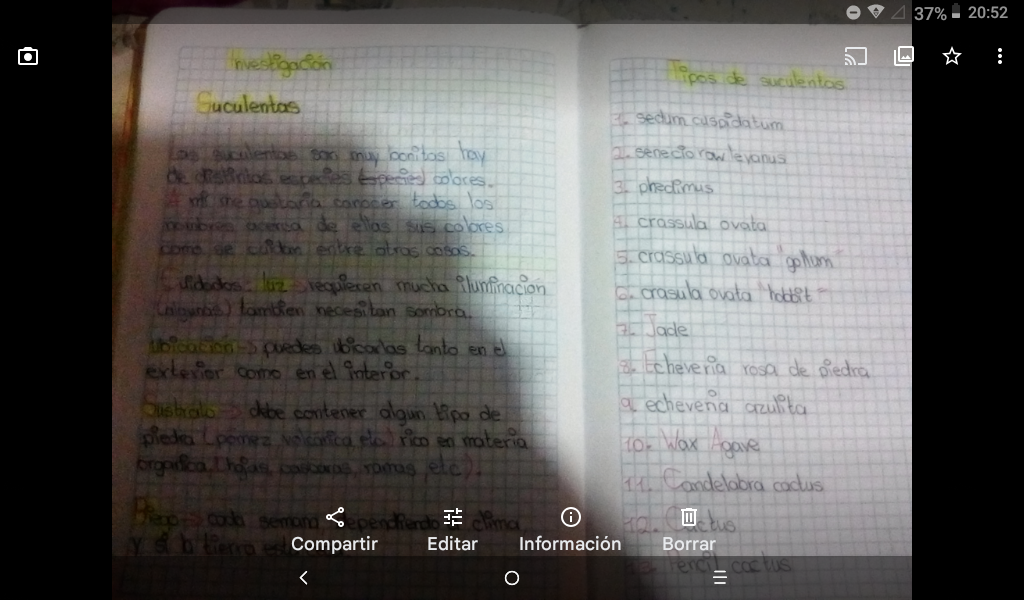 37% 20:52
Investigación
Suculentas
Las suculentas son muy bonitas hay
de distintas especies (especies) colores.
A mi me gustaria conocer todos los
nombres acerca de ellas sus colores
como se cuidan entre otras cosas.
Cuidados: luz → requieren mucha iluminación
(algunas) tambien necesitan sombra.
Ubicación → puedes ubicarlas tanto en el
exterior como en el interior.
Sustrato → debe contener algun tipo de
piedra (pómez, volcánica, etc.) rico en materia
organica, (hojas, cascaras, ramas, etc).
Riego → cada semana dependiendo clima
y si la tierra
Tipos de suculentas
1. sedum cuspidatum
2. senecio rowleyanus
3. phedimus
4. crassula ovata
5. crassula ovata "gollum"
6. crasula ovata "hobbit"
7. Jade
8. Echeveria rosa de piedra
9. echeveria azulita
10. Wax Agave
11. Candelabra cactus
12. Cactus
13. Pencil cactus
Compartir
Editar
Información
Borrar